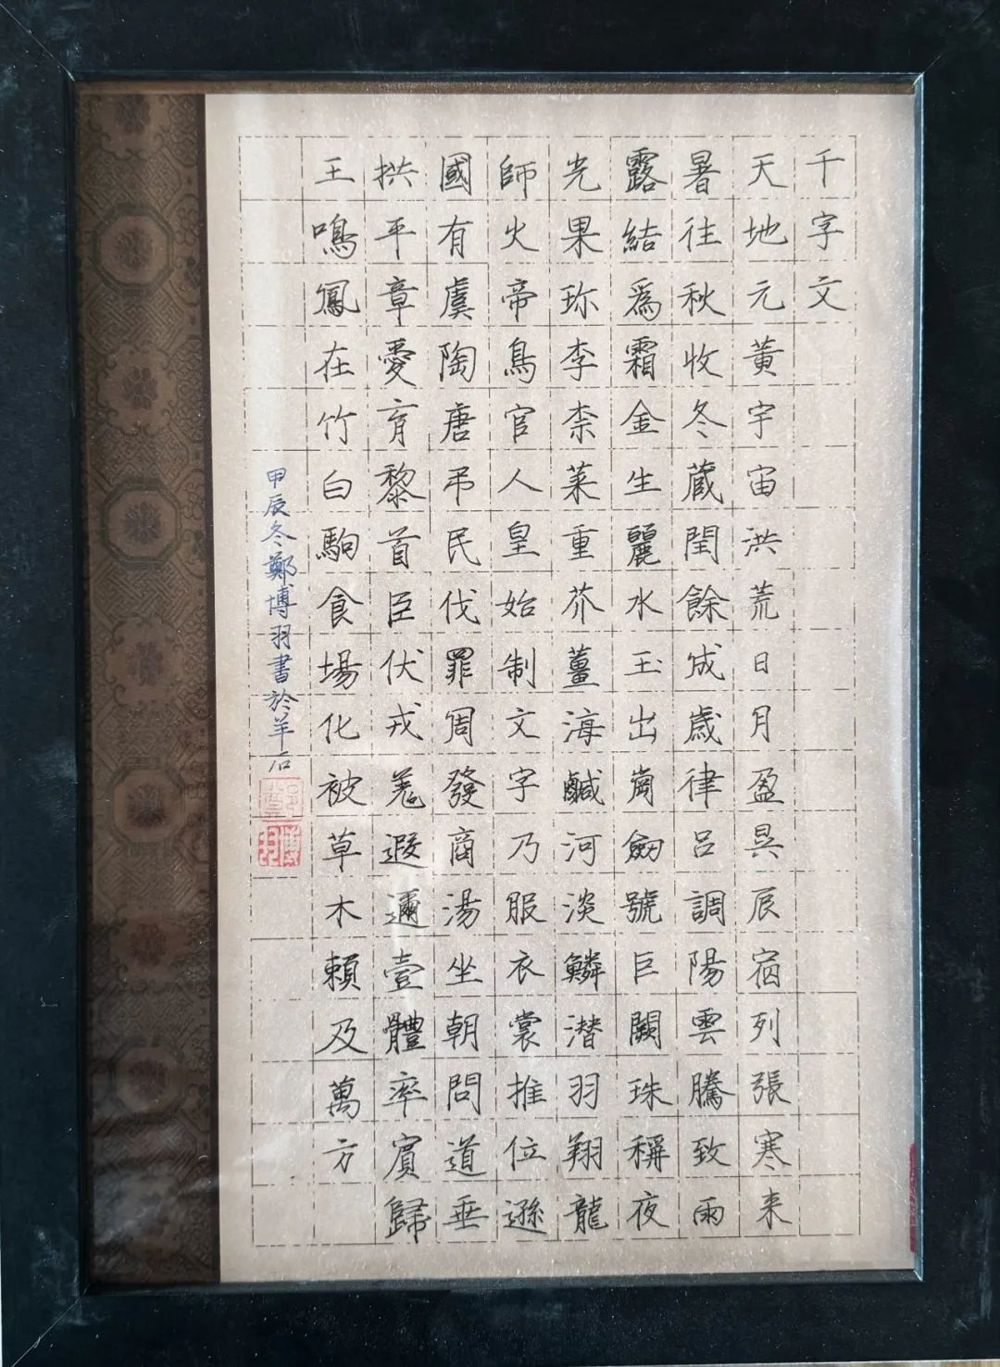 千字文
天地元黃宇宙洪荒日月盈昃辰宿列張寒来
暑往秋收冬蔵閏餘成歲律呂調陽雲騰致雨
露結爲霜金生麗水玉出崗劒號巨闕珠稱夜
光果珎李柰菜重芥薑海鹹河淡鱗潛羽翔龍
師火帝鳥官人皇始制文字乃服衣裳推位遜
國有虞陶唐弔民伐罪周發商湯坐朝問道垂
拱平章愛育黎首臣伏戎羌遐邇壹體率賓歸
王鳴鳳在竹白駒食場化被草木賴及萬方
甲辰冬鄭博羽書於羊石